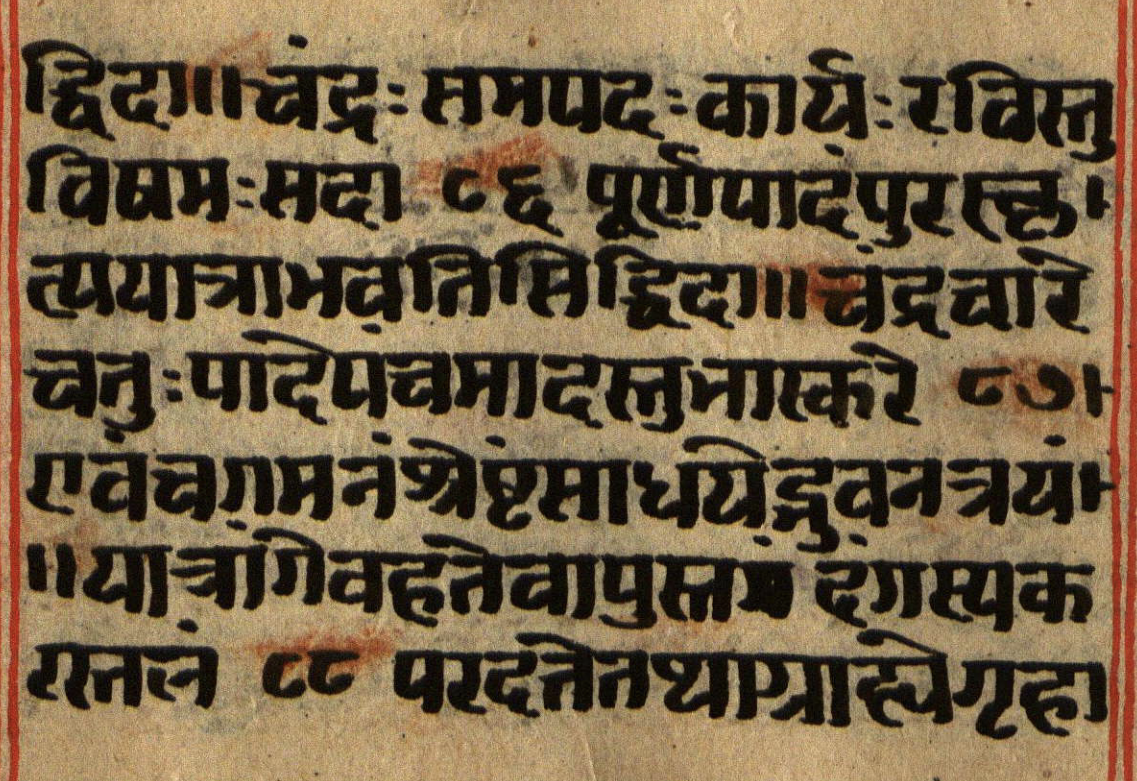 द्धिदा॥चंद्रः समपदः कार्यः रविस्तु
विषमः सदा ८६ पूर्णपादंपुरस्कृ।
त्पयात्राभवतिसिद्धिदा॥चंद्रचारे
चतुःपादेपंचमादस्तुभास्करे ८७।
एवंचगमनंश्रेष्टंसाधयेद्भुवनत्रयं।
॥यात्रांगेवहतेवापुस्त दंगस्यक
रास्तलं ८८ परदत्तेतथाग्राह्येगृहा